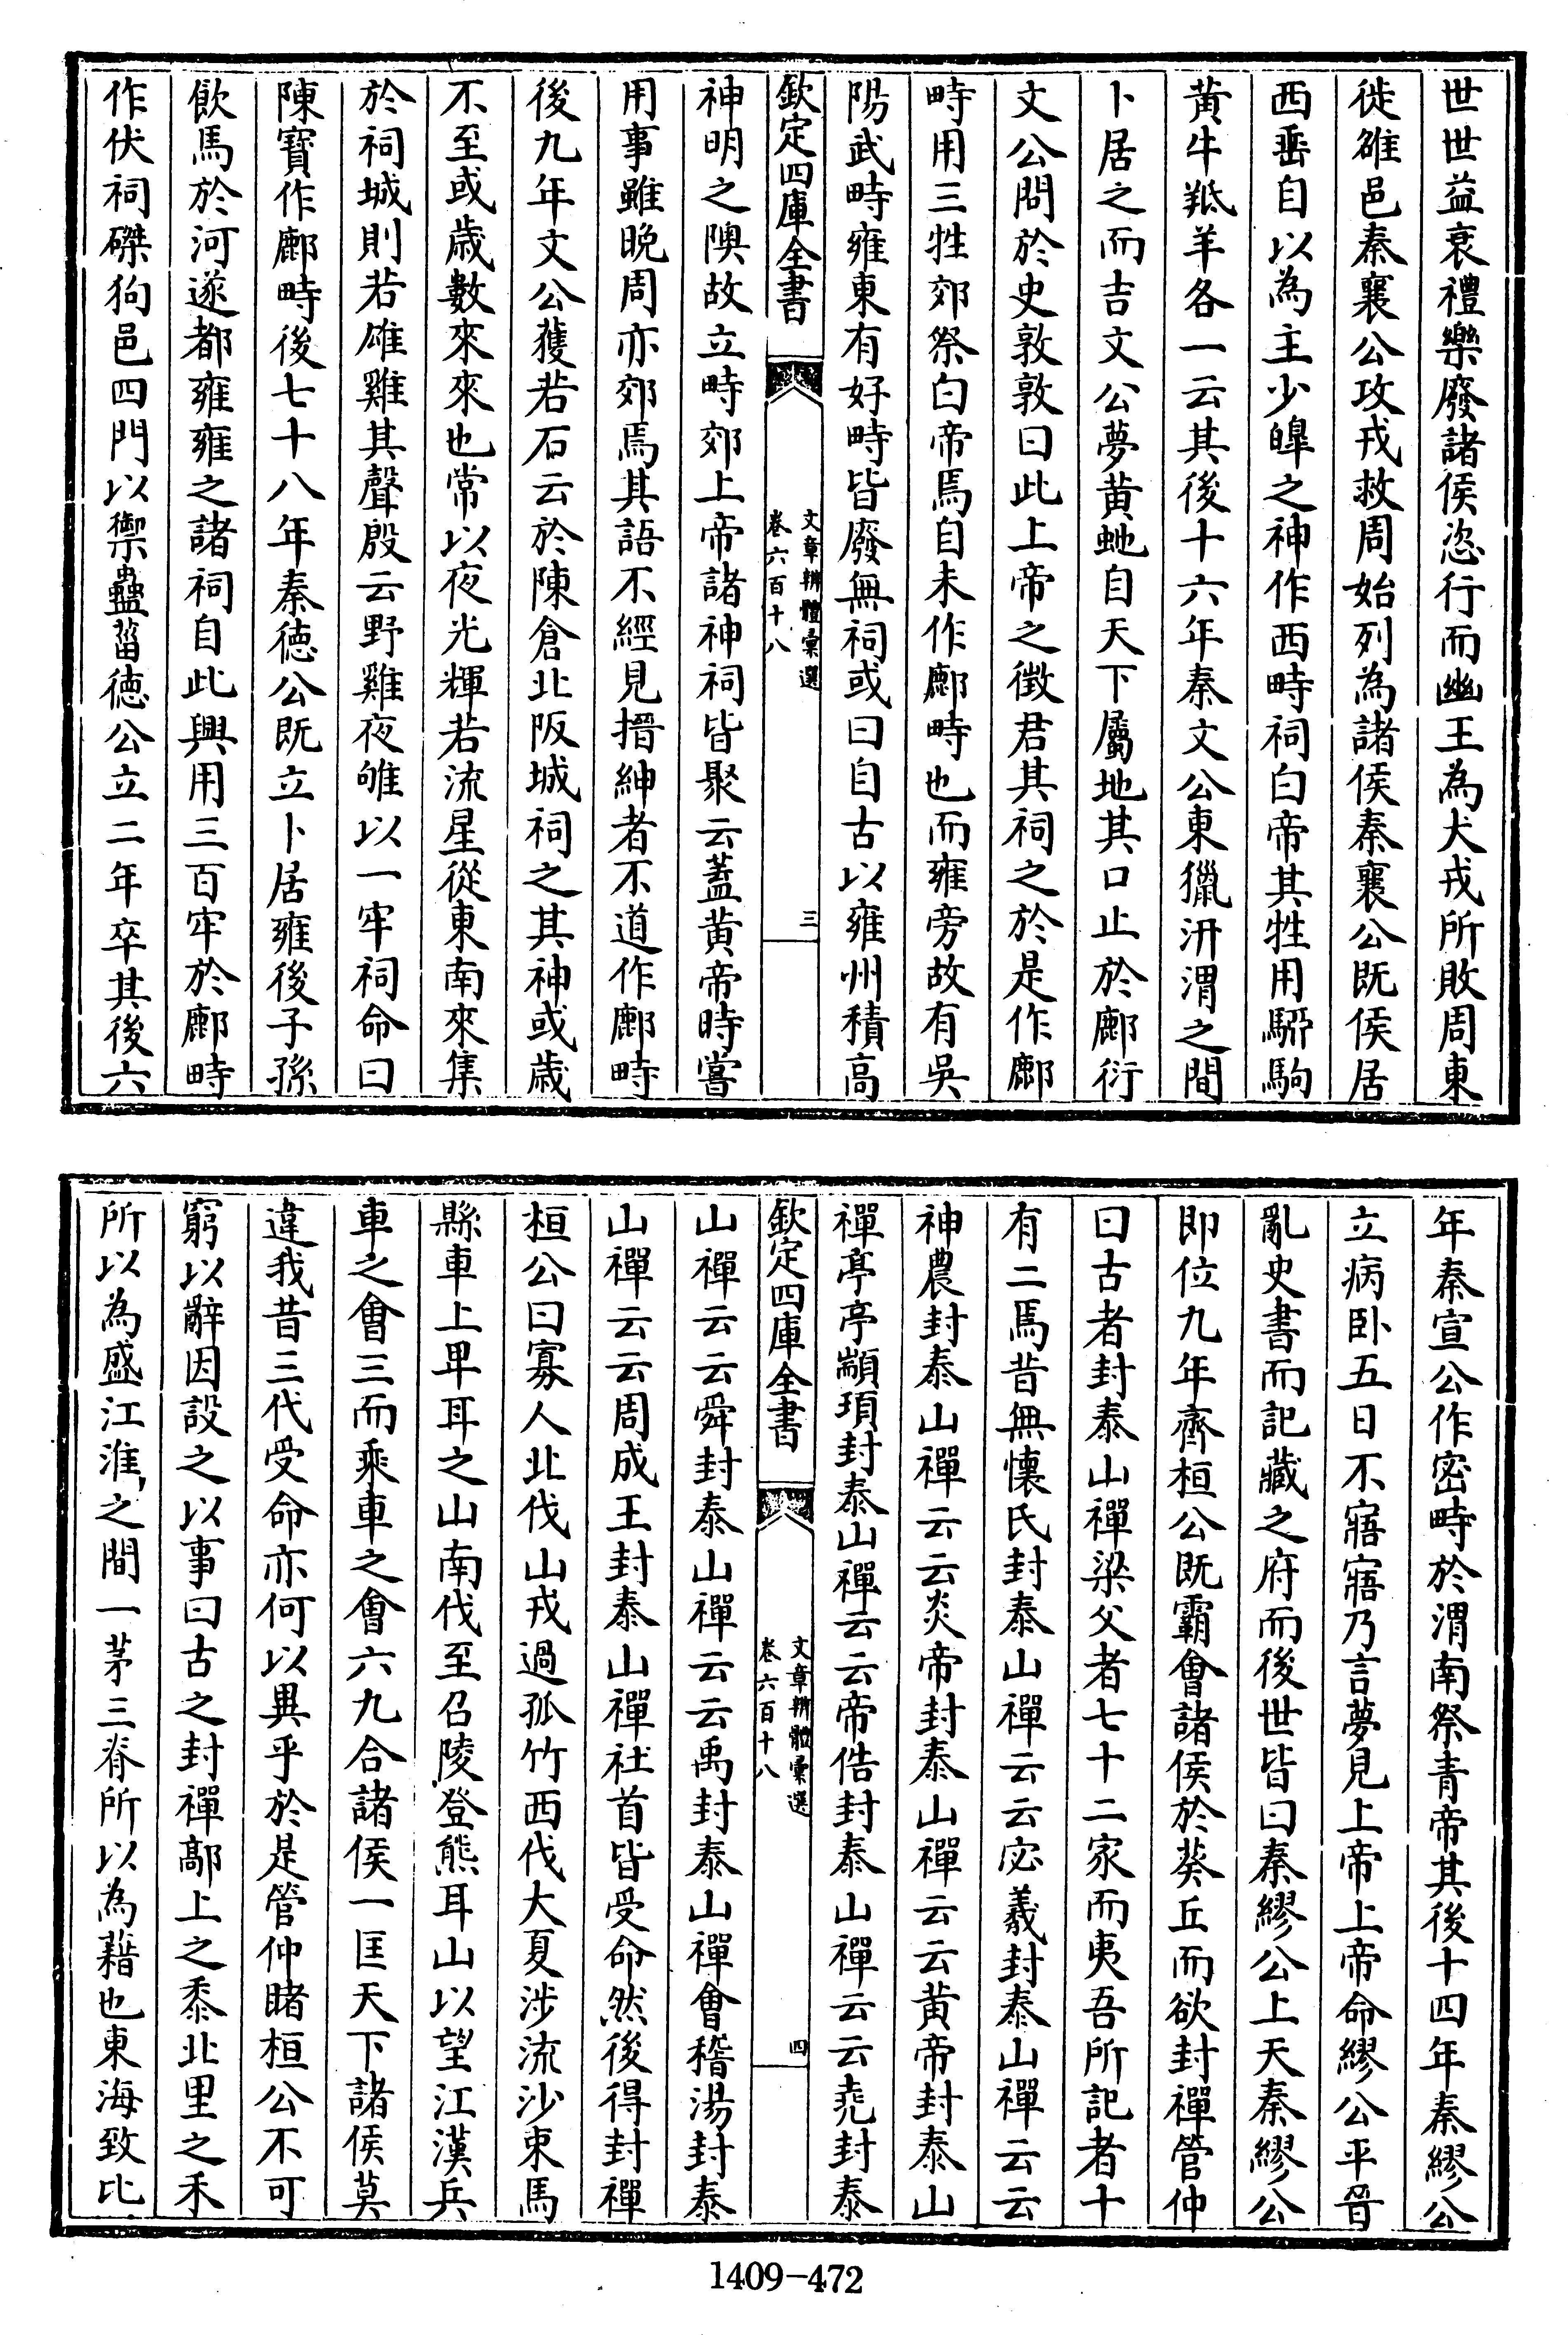 世世益衰禮樂廢諸侯恣行而幽王為犬戎所敗周東
徙雒邑秦襄公攻戎救周始列為諸侯秦襄公既侯居
西垂自以為主少皡之神作西畤祠白帝其牲用駵駒
黃牛羝羊各一云其後十六年秦文公東獵汧渭之間
卜居之而吉文公夢黃虵自天下屬地其口止於鄜衍
文公問於史敦敦曰此上帝之徵君其祠之於是作鄜
畤用三牲郊祭白帝焉自未作鄜畤也而雍旁故有吳
陽武畤雍東有好畤皆廢無祠或曰自古以雍州積高
欽定四庫全書
文章辨體彙選
卷六百十八
三
神明之隩故立畤郊上帝諸神祠皆聚云蓋黃帝時嘗
用事雖晚周亦郊焉其語不經見搢紳者不道作鄜畤
後九年文公獲若石云於陳倉北阪城祠之其神或歲
不至或歲數來來也常以夜光輝若流星從東南來集
於祠城則若雄雞其聲殷云野雞夜雊以一牢祠命曰
陳寶作鄜畤後七十八年秦德公既立卜居雍後子孫
飲馬於河遂都雍雍之諸祠自此興用三百牢於鄜畤
作伏祠磔狗邑四門以禦蠱菑德公立二年卒其後六
年秦宣公作密畤於渭南祭青帝其後十四年秦繆公
立病臥五日不寤寤乃言夢見上帝上帝命繆公平晉
亂史書而記藏之府而後世皆曰秦繆公上天秦繆公
即位九年齊桓公既霸會諸侯於葵丘而欲封禪管仲
曰古者封泰山禪梁父者七十二家而夷吾所記者十
有二焉昔無懷氏封泰山禪云云宓羲封泰山禪云云
神農封泰山禪云云炎帝封泰山禪云云黃帝封泰山
禪亭亭顓頊封泰山禪云云帝俈封泰山禪云云堯封泰
欽定四庫全書
文章辨體彙選
卷六百十八
四
山禪云云舜封泰山禪云云禹封泰山禪會稽湯封泰
山禪云云周成王封泰山禪社首皆受命然後得封禪
桓公曰寡人北伐山戎過孤竹西伐大夏涉流沙束馬
縣車上卑耳之山南伐至召陵登熊耳山以望江漢兵
車之會三而乘車之會六九合諸侯一匡天下諸侯莫
違我昔三代受命亦何以異乎於是管仲睹桓公不可
窮以辭因設之以事曰古之封禪鄗上之黍北里之禾
所以為盛江淮之間一茅三脊所以為藉也東海致比
1409-472